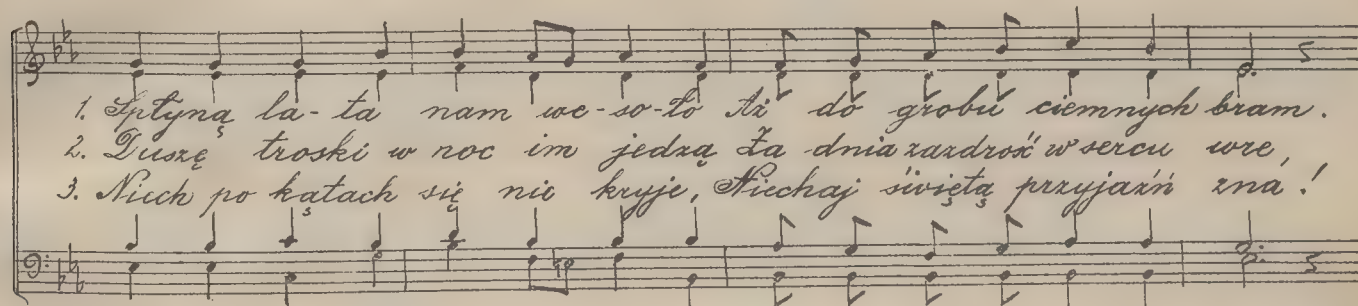 1. Spłyną la-ta nam we-so-ło Aż do grobu ciemnych bram.
2. Duszę troski w noc im jedzą Za dnia zazdrość w sercu wre,
3. Niech po kątach się nie kryje, Niechaj świętą przyjaźń zna!